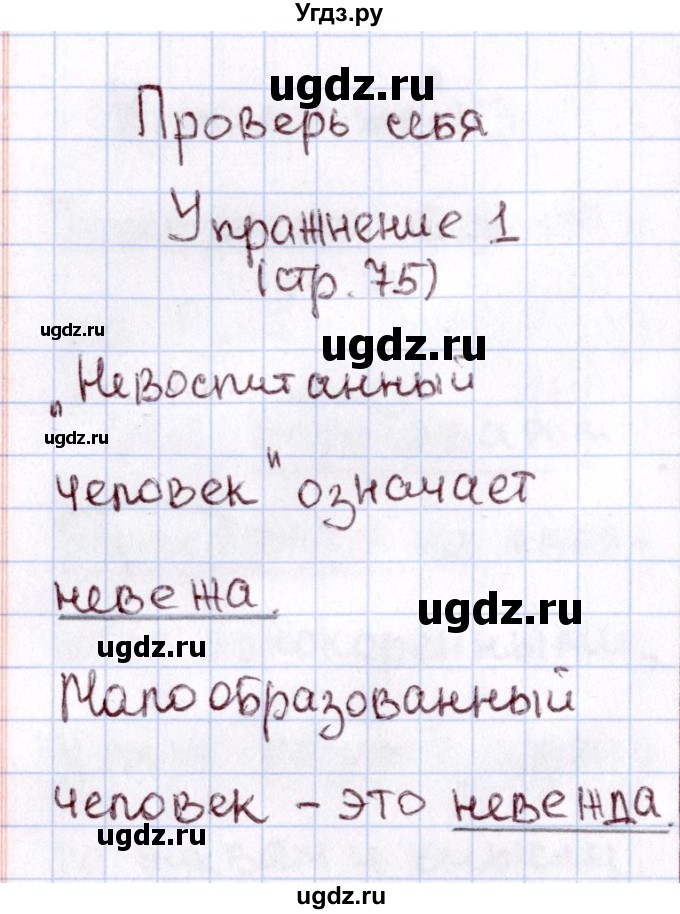 Угдз.ру
ugdz.ru
Проверь себя
Упражнение 1
(стр. 75)
ugdz.ru
ugdz.ru
„Невоспитанный
ugdz.ru
человек" означает
невежа.
ugdz.ru
ugdz.ru
Малообразованный
человек – это невежда.
ugdz.ru
ugdz.ru